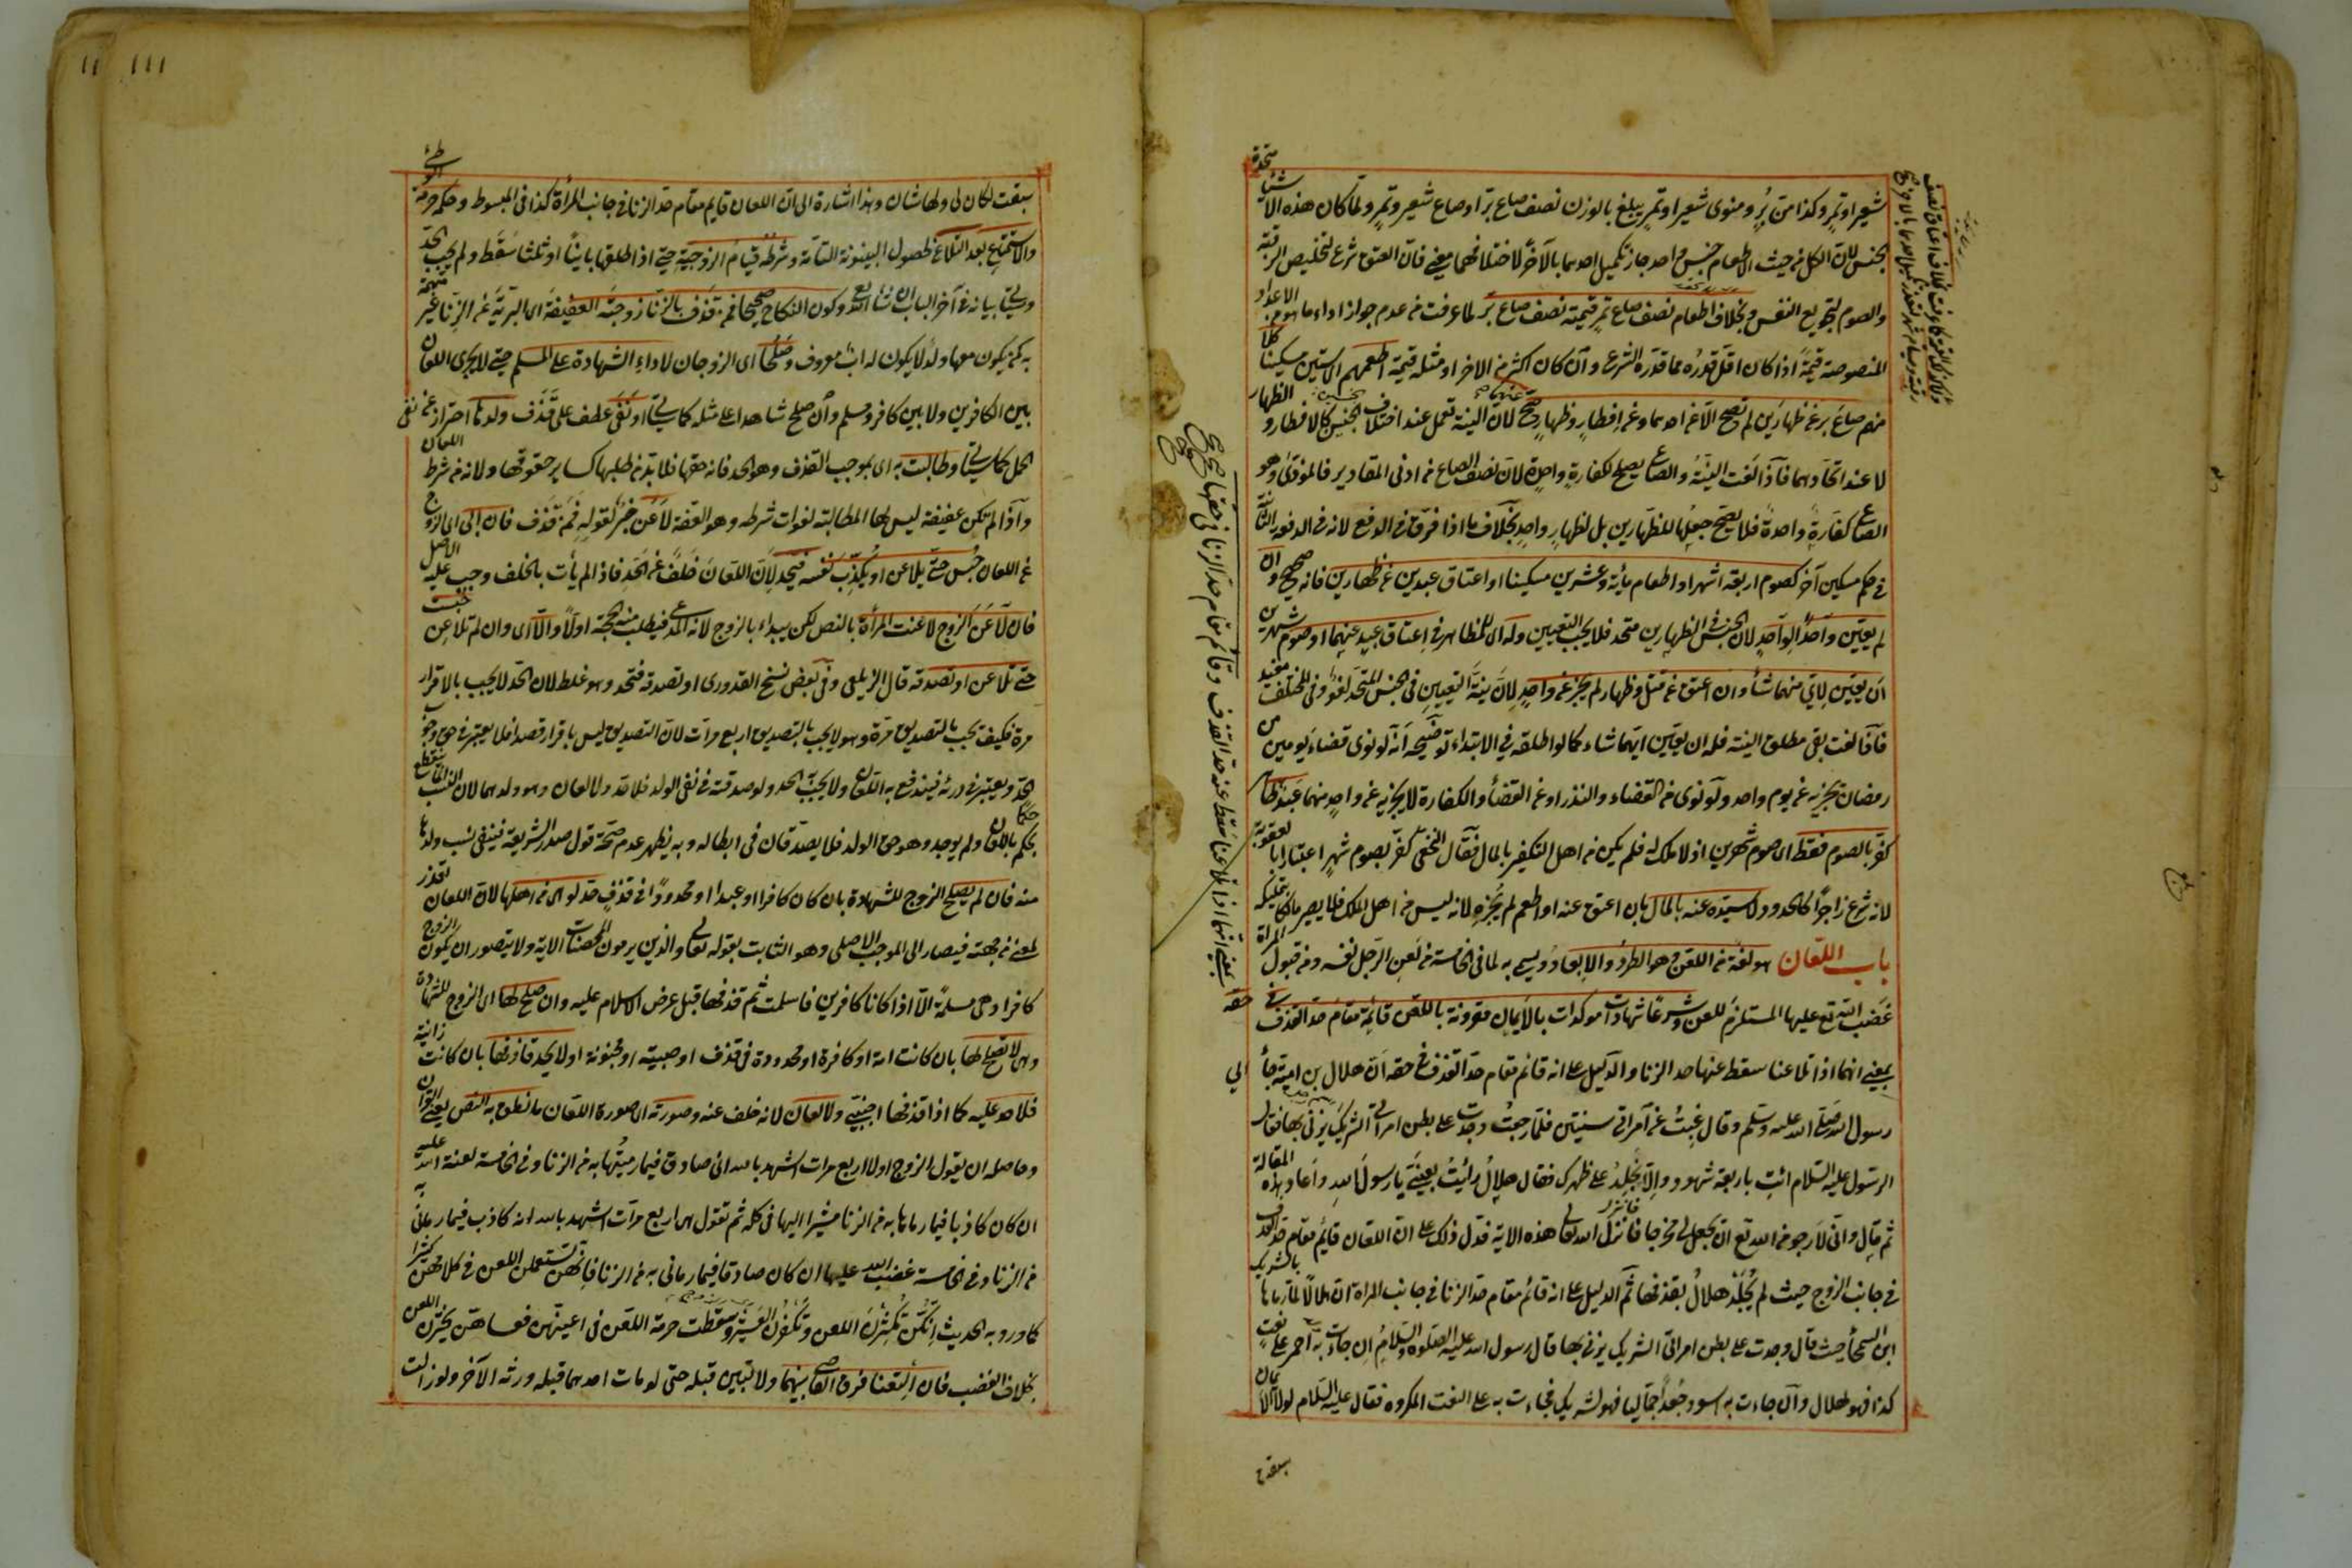 شعير او تمر وكذا من بر ومنوى شعير او تمر يبلغ بالوزن نصف صاع بر او صاع شعير وتمر ولما كان هذه الاشياء متحدة
لجنس لان الكل من حيث الاطعام جنس واحد جاز تكميل احدهما بالآخر لا ختلافهما معنى فان العتق شرع لتخليص الرقبة
والصوم لتجويع النفس وبخلاف اطعام نصف صاع تمر قيمته نصف صاع بر لما عرفت من عدم جواز اداء ما هو من الاعداد
المنصوصة قيمة اذا كان اقل قدره مما قدره الشرع وان كان اكثر من الاخر او مثله قيمة اطعمهم اى ستين مسكينا كلا
منهم صاع بر عن ظهارين لم تصح الا عن احدهما وعن افطار وظهار صح لان النية تعمل عند اختلاف الجنسين كالافطار والظهار
لا عند اتحادهما فاذا لغت النية والصاع يصلح لكفارة واحدة لان نصف الصاع من ادنى المقادير فالمؤدى وهو
الصاع كفارة واحدة فلا يصح جعلها للظهارين بل لظهار واحد بخلاف ما اذا فرق فى الدفع لانه فى الدفعة الثانية
فى حكم مسكين آخر كصوم اربعة اشهر او اطعام مأية وعشرين مسكينا او اعتاق عبدين عن ظهارين فانه صحيح وان
لم يعين واحدا لواحد لان الجنس فى الظهارين متحد فلا يجب التعيين وله اى للمظاهر فى اعتاق عبد عنهما او صوم شهرين
ان يعين لاى منهما شاء وان اعتق عن قتل وظهار لم يجز عن واحد لان نية التعيين فى الجنس المتحد لغو وفى المختلف مفيد
فاذا لغت بقى مطلق النية فله ان يعين ايهما شاء كما لو اطلقه فى الابتداء توضيحه انه لو نوى قضاء يومين من
رمضان يجزيه عن يوم واحد ولو نوى من القضاء والنذر او عن القضاء والكفارة لا يجزيه عن واحد منهما عبد ظاهر
كفر بالصوم فقط اى صوم شهرين اذ لا ملك له فلم يكن من اهل التكفير بالمال فقال النخعى كفر بصوم شهر اعتبارا بالعقوبة
لانه شرع زاجرا كالحدود لا سيده عنه بالمال بان اعتق عنه او اطعم لم يجزه لانه ليس من اهل الملك فلا يصير مالكا بتمليكه
باب اللعان هو لغة من اللعن وهو الطرد والابعاد ويسمى به لما فى الخامسة من لعن الرجل نفسه ومن قبول المرأة
غضب الله تع عليها المستلزم للعن وشرعا شهادات مؤكدات بالايمان مقرونة باللعن قائمة مقام حد القذف فى حقه
بمعنى انهما اذا تلاعنا سقط عنها حد الزنا والدليل على انه قائم مقام حد القذف فى حقه ان هلال بن امية جاء الى
رسول الله صلى الله عليه وسلم وقال غبت عن امرأتى سنتين فلما رجعت وجدت على بطن امرأتى الشريك يزنى بها فقال
الرسول عليه السلام ائت باربعة شهود والا يجلد على ظهرك فقال هلال رأيت بعينى يا رسول الله واعاد بهذه المقالة
ثم قال وانى لارجو من الله تع ان يجعل لى مخرجا فانزل الله تعالى هذه الاية فدل ذلك على ان اللعان قائم مقام حد القذف
فى جانب الزوج حيث لم يجلد هلال بقذفها ثم الدليل على انه قائم مقام حد الزنا فى جانب المرأة ان هلالا لما رماها بالشريك
ابن السحماء حيث قال وجدت على بطن امرأتى الشريك يزنى بها قال رسول الله عليه الصلوة والسلام ان جاءت به احمر على نعت
كذا فهو لهلال وان جاءت به اسود جعدا جماليا فهو لشريك فجاءت به على النعت المكروه فقال عليه السلام لولا الايمان
سبقت
بمعنى انهما اذا تلاعنا سقط عنه حد القذف وقائم مقام حد الزنا فى حقها صح
سبقت لكان لى ولها شان وهذا اشارة الى ان اللعان قايم مقام حد الزنا فى جانب المرأة كذا فى المبسوط وحكمه حرمة الوطئ
والاستمتاع بعد التلاعن لحصول البينونة التامة وشرطه قيام الزوجية حتى اذا طلقها باينا او ثلثا سقط ولم يجب الحد
وسيأتى بيانه فى آخر الباب ان شاء الله تع وكون النكاح صحيحا فمن قذف بالزنا زوجته العفيفة اى البرية عن الزنا غير متهمة
به كمن يكون معها ولد لا يكون له اب معروف وصلحا اى الزوجان لاداء الشهادة على المسلم حتى لا يجرى اللعان
بين الكافرين ولا بين كافر ومسلم وان صلح شاهدا على مثله كما سيأتى او نفى عطف على قذف ولدها احتراز عن نفى
الحمل كما سيأتى وطالبت به اى بموجب القذف وهو الحد فانه حقها فلا بد من طلبها كساير حقوقها ولانه من شرط اللعان
واذا لم تكن عفيفة ليس لها المطالبة لفوات شرطه وهو العفة لاعن خبر لقوله فمن قذف فان ابى اى الزوج
عن اللعان حبس حتى يلاعن او يكذب نفسه فيحد لان اللعان خلف عن الحد فاذا لم يأت بالخلف وجب عليه الاصل
فان لاعن الزوج لاعنت المرأة بالنص لكن يبداء بالزوج لانه المدعى فيطلب منه الحجة اولا والا اى وان لم تلاعن حبست
حتى تلاعن او تصدقه قال الزيلعى وفى بعض نسخ القدورى او تصدقه فتحد وهو غلط لان الحد لا يجب بالاقرار
مرة فكيف يجب بالتصديق مرة وهو لا يجب بالتصديق اربع مرات لان التصديق ليس باقرار قصدا فلا يعتبر فى حق وجوب
الحد ويعتبر فى درئه فيندفع به اللعان ولا يجب به الحد ولو صدقته فى نفى الولد فلا حد ولا لعان وهو ولدهما لان النسب انما ينقطع
بحكم اللعان ولم يوجد وهو حق الولد فلا يصدقان فى ابطاله وبه يظهر عدم صحة قول صدر الشريعة فينفى نسب ولدها
منه فان لم يصلح الزوج للشهادة بان كان كافرا او عبدا او محدودا فى قذف حد لو اى من اهلها لان اللعان تعذر
لمعنى من جهته فيصار الى الموجب الاصلى وهو الثابت بقوله تعالى والذين يرمون المحصنات الاية ولا يتصور ان يكون الزوج
كافرا وهى مسلمة الا اذا كانا كافرين فاسلمت ثم قذفها قبل عرض الاسلام عليه وان صلح لها اى الزوج للشهادة
وهى لا تصلح لها بان كانت امة او كافرة او محدودة فى قذف او صبية او مجنونة او لا يحد قاذفها بان كانت زانية
فلا حد عليه كما اذا قذفها اجنبى ولا لعان لانه خلف عنه وصورته اى صورة اللعان ما نطق به النص يعنى القرآن
وحاصله ان يقول الزوج اولا اربع مرات اشهد بالله انى صادق فيما رميتها به من الزنا وفى الخامسة لعنة الله عليه
ان كان كاذبا فيما رماها به من الزنا مشيرا اليها فى كله ثم تقول هى اربع مرات اشهد بالله انه كاذب فيما رمانى به
من الزنا وفى الخامسة غضب الله عليها ان كان صادقا فيما رمانى به من الزنا فانهن تستعملن اللعن فى كلامهن كثيرا
كما ورد به الحديث انكن تكثرن اللعن وتكفرن العشير وسقطت حرمة اللعن فى اعينهن فعساهن يجترئن اللعن
بخلاف الغضب فان التعنا فرق القاضى بينهما ولا تبين قبله حتى لو مات احدهما قبله ورثه الآخر ولو زالت